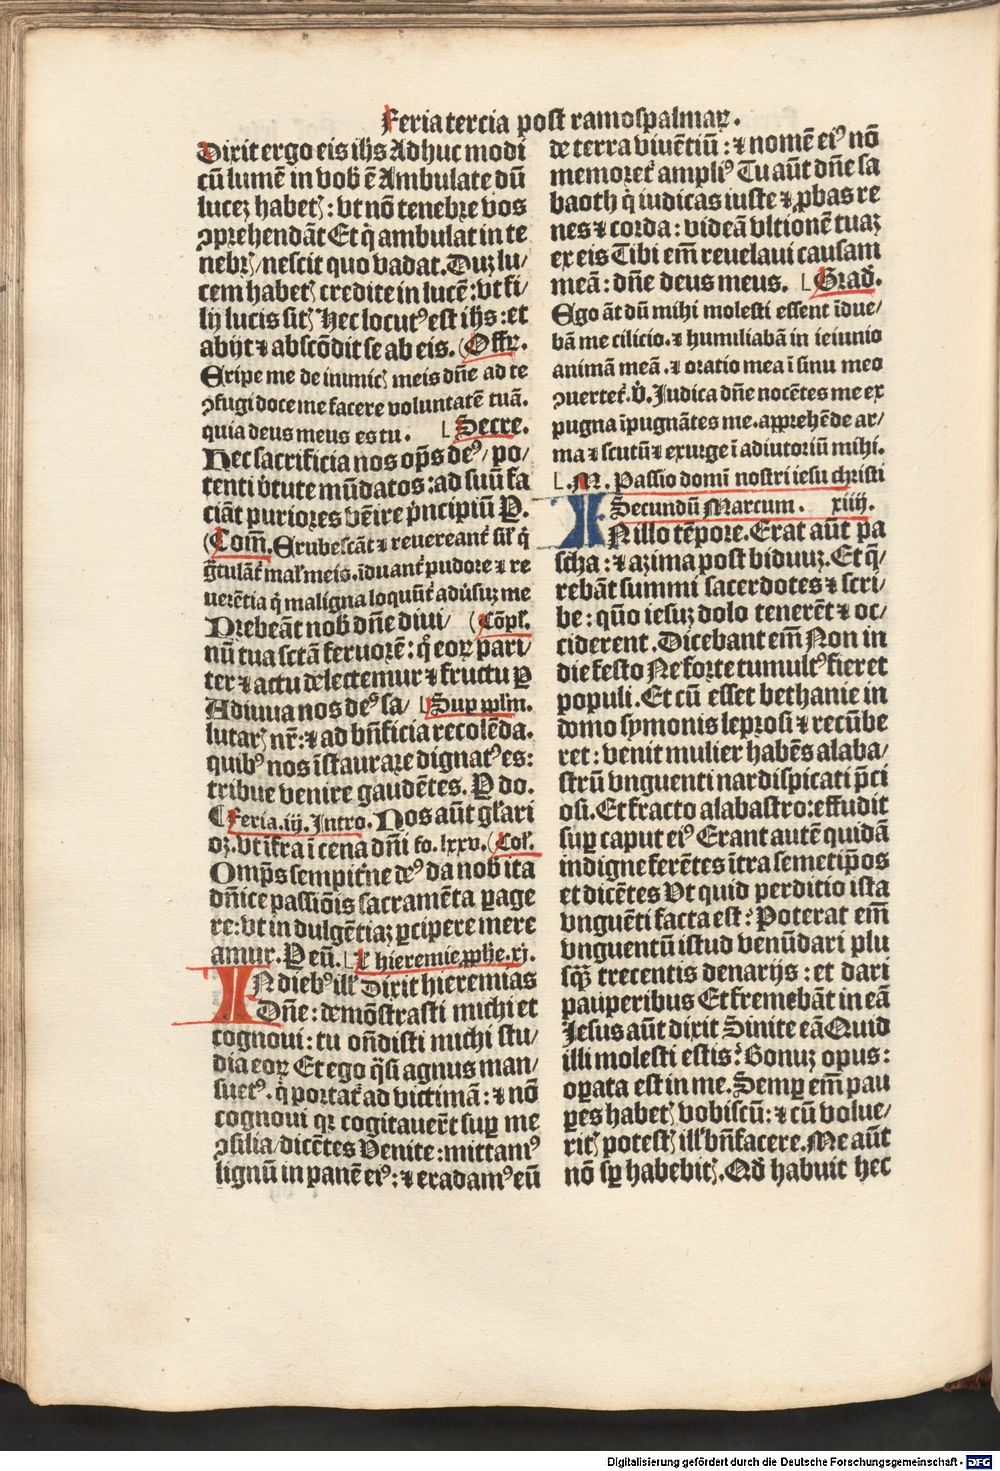 Feria tercia post ramospalmaꝝ.
Dixit ergo eis ihs Adhuc modi
cū lumē in vob̄ ē Ambulate dū
lucez habetꝭ: vt nō tenebre vos
ꝯprehendāt Et q̇ ambulat in te
nebrꝭ/ nescit quo vadat. Duz lu/
cem habetꝭ credite in lucē: vt fi/
lij lucis sitꝭ Hec locutꝰ est ihs: et
abijt ⁊ abscōdit se ab eis. (Offr̄.
Eripe me de inimicꝭ meis dn̄e ad te
ꝯfugi doce me facere voluntatē tuā.
quia deus meus es tu. Secre.
Hec sacrificia nos op̄s deꝰ/ po/
tenti v̇tute mūdatos: ad suū fa
ciāt puriores vēire pⁱncipiū P.
(Com̄. Erubescāt ⁊ revereant᷑ sil̄ q̇
gr̄tulāt᷑ mal̄ meis. īduant᷑ pudore ⁊ re
uerētia q̇ maligna loquūt᷑ adūsuz me
Prebeāt nob̄ dn̄e diui/ (Cōpl̄.
nū tua sctā feruorē: q̇ eoꝝ pari/
ter ⁊ actu delectemur ⁊ fructu ꝑ
Adiuua nos deꝰ sa/ Suꝑ pplm̄.
lutarꝭ nr̄: ⁊ ad bn̄ficia recolēda.
quibꝰ nos īstaurare dignatꝰ es:
tribue venire gaudētes. P do.
Feria.iij. Intro. Nos aūt gl̄ari
oꝫ. vt īfra ī cena dn̄i fo. lxxv. (Col̄.
Omp̄s sempit̄ne deꝰ da nob̄ ita
dn̄ice passiōis sacramēta ꝑage
re: vt in dulgētiaz ꝑcipere mere
amur. P eū. Lc̄ hieremie ꝓphe. xj.
IN diebꝰ ill̄ Dixit hieremias
Dn̄e: demōstrasti michi et
cognoui: tu on̄disti michi stu/
dia eoꝝ Et ego q̄si agnus man/
suetꝰ. q̇ portat᷑ ad victimā: ⁊ nō
cognoui qꝛ cogitauer̄t suꝑ me
ꝯsilia/ dicētes Venite: mittamꝰ
lignū in panē eiꝰ: ⁊ eradamꝰ eū
de terra viuētiū: ⁊ nomē eiꝰ nō
memoret᷑ ampliꝰ Tu aūt dn̄e sa
baoth q̇ iudicas iuste ⁊ ꝓbas re
nes ⁊ corda: videā vltionē tuaz
ex eis Tibi em̄ reuelaui causam
meā: dn̄e deus meus. Grad̄.
Ego āt dū mihi molesti essent īdue/
bā me cilicio. ⁊ humiliabā in ieiunio
animā meā. ⁊ oratio mea ī sinu meo
ꝯuertet᷑. V̄. Iudica dn̄e nocētes me ex
pugna īpugnātes me. apprehēde ar/
ma ⁊ scutū ⁊ exurge ī adiutoriū mihi.
.M. Passio domī nostri iesu christi
Secundū Marcum. xiiij.
IN illo tēpore. Erat aūt pa
scha: ⁊ azima post biduuz. Et q̄/
rebāt summi sacerdotes ⁊ scri/
be: quō iesuz dolo tenerēt ⁊ oc/
ciderent. Dicebant em̄ Non in
die festo Ne forte tumultꝰ fieret
populi. Et cū esset bethanie in
domo symonis leprosi ⁊ recūbe
ret: venit mulier habēs alaba/
strū vnguenti nardi spicati p̄ci
osi. Et fracto alabastro: effudit
suꝑ caput eiꝰ Erant autē quidā
indigne ferētes ītra semetip̄os
et dicētes Vt quid perditio ista
vnguēti facta est: Poterat em̄
vnguentū istud venūdari plu
sꝗ̄ trecentis denarijs: et dari
pauperibus Et fremebāt in eā
Jesus aūt dixit Sinite eā Quid
illi molesti estis: Bonuz opus:
oꝑata est in me. Semꝑ em̄ pau
ꝑes habetꝭ vobiscū: ⁊ cū volue/
ritꝭ potestꝭ ill̄ bn̄facere. Me aūt
nō sꝑ habebitꝭ. Qd̄ habuit hec
Digitalisierung gefördert durch die Deutsche Forschungsgemeinschaft - DFG